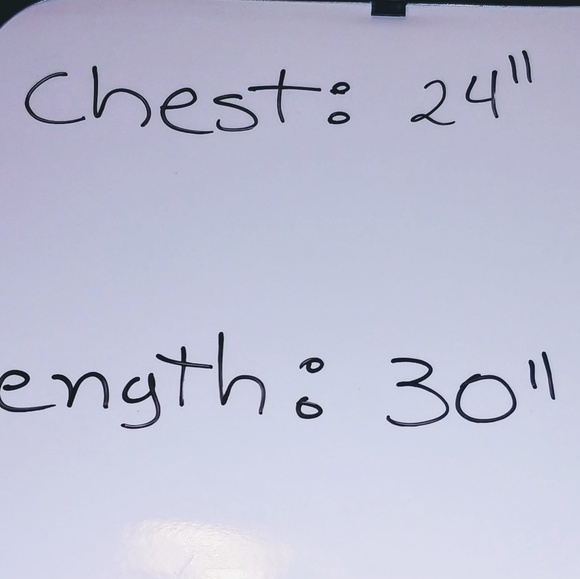 Chest: 24"
ength: 30"